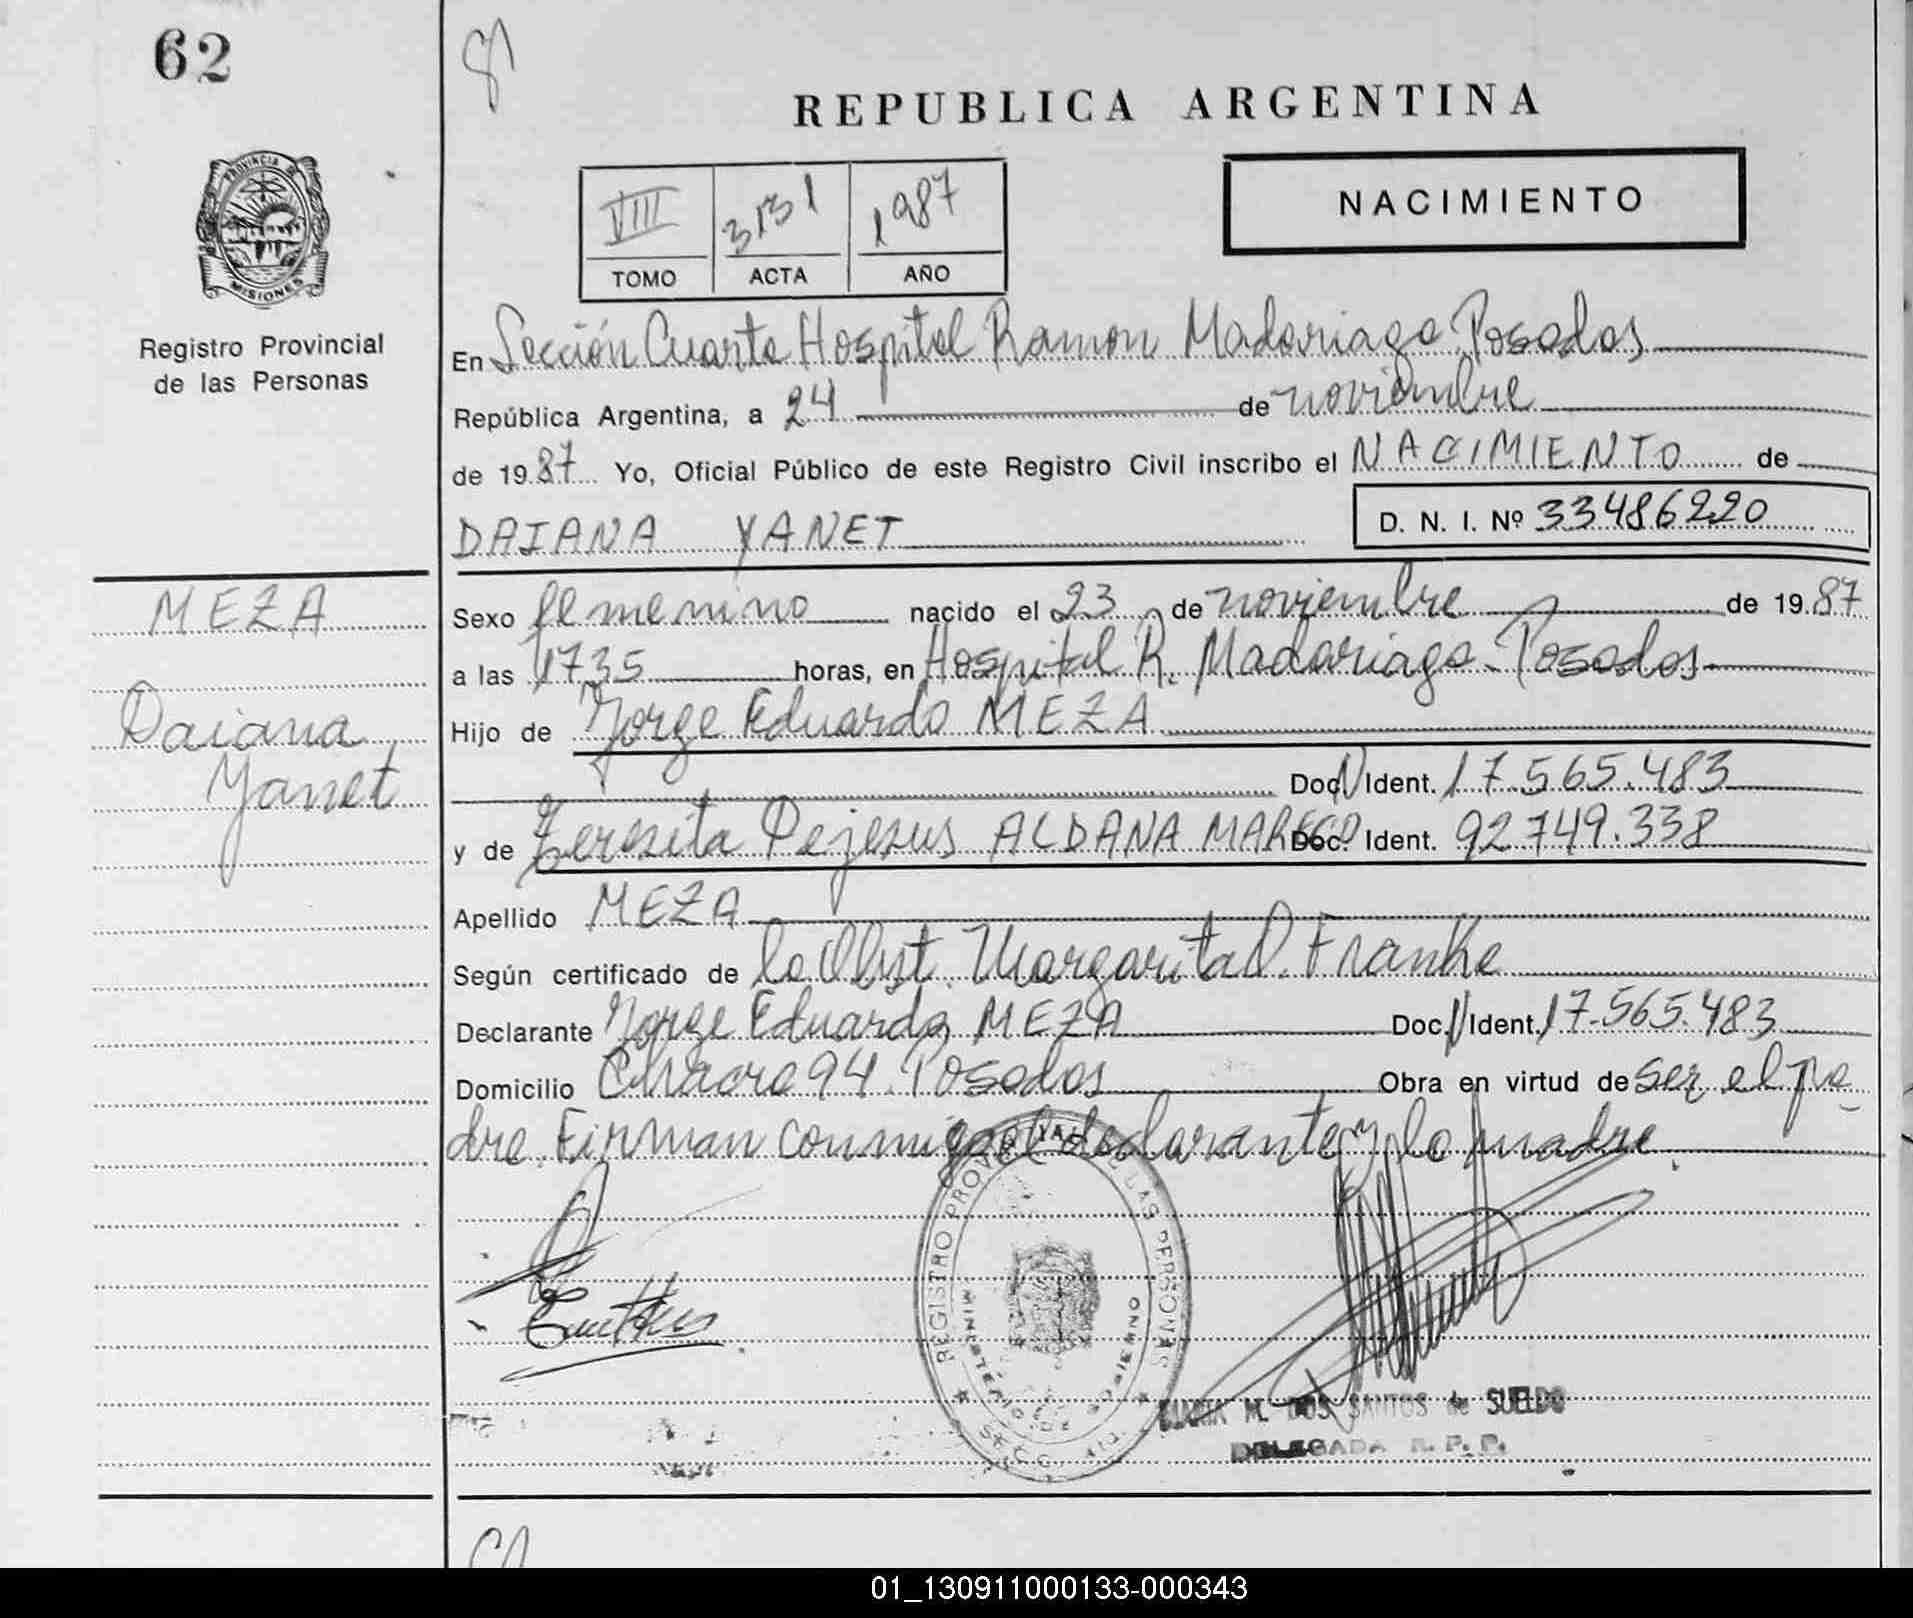 62
REPUBLICA ARGENTINA
PROVINCIA DE
MISIONES
Registro Provincial
de las Personas
VIII 3131 1987
TOMO ACTA AÑO
NACIMIENTO
En Sección Cuarta Hospital Ramon Madariaga Posadas
República Argentina, a 24 de noviembre
de 1987 Yo, Oficial Público de este Registro Civil inscribo el NACIMIENTO de
DAIANA YANET D. N. I. Nº 33486220
MEZA
Daiana
Yanet
Sexo femenino nacido el 23 de noviembre de 1987
a las 1735 horas, en Hospital R. Madariaga - Posadas
Hijo de Jorge Eduardo MEZA
Doc. Ident. 17.565.483
y de Teresita Dejesus ALDANA MARECO Doc. Ident. 92749.338
Apellido MEZA
Según certificado de la Obst. Margarita D. Franke
Declarante Jorge Eduardo MEZA Doc. Ident. 17.565.483
Domicilio Chacra 94. Posadas Obra en virtud de ser el pa
dre. Firman conmigo el declarante y la madre.
REGISTRO PROVINCIAL DE LAS PERSONAS
MINISTERIO DE GOBIERNO
SECC. 4ta
M. DOS SANTOS de SUELDO
DELEGADA R. P. P.
01_130911000133-000343